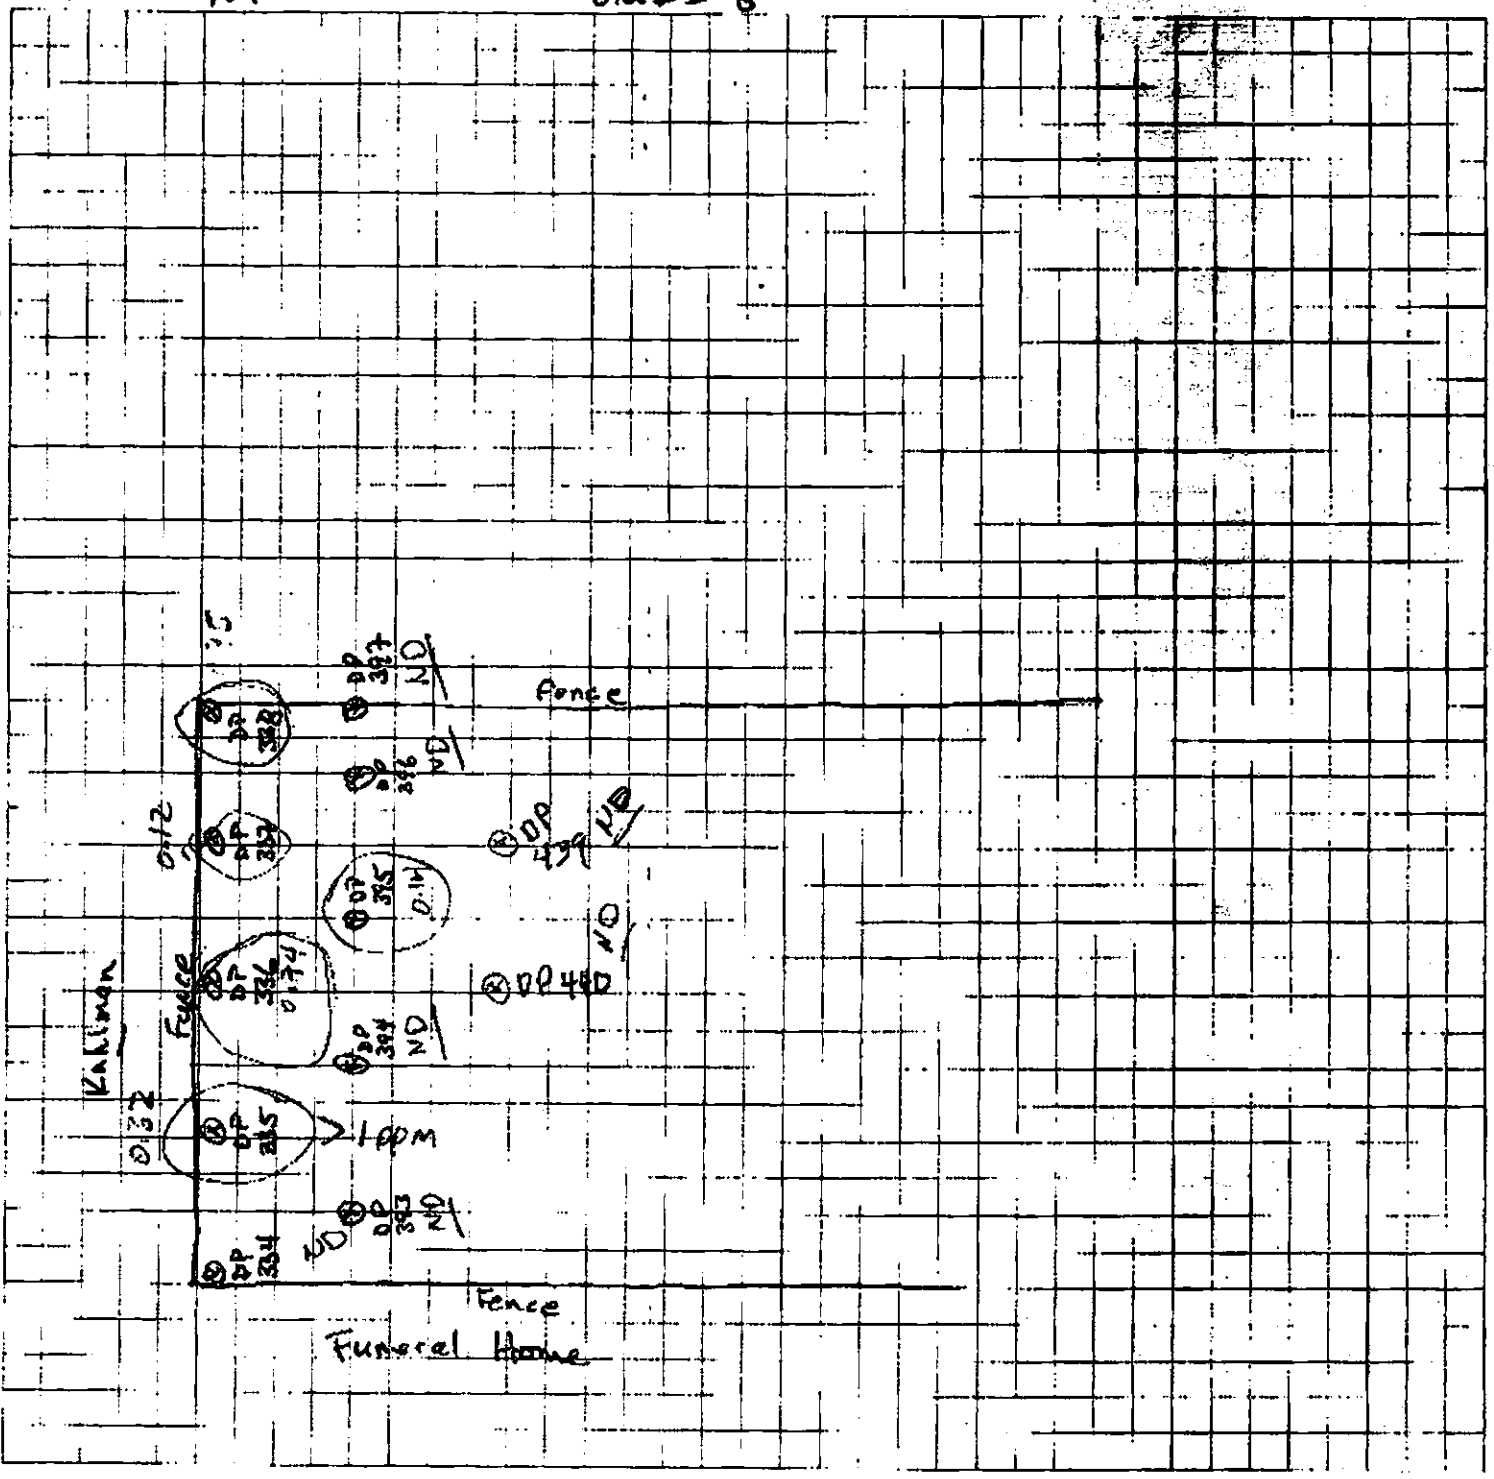 DP
397
ND
Fence
DP
338
DP
396
ND
0.12
DP
337
DP
439
ND
DP
395
0.14
ND
Kahlman
Fence
DP
336
0.74
DP 440
DP
394
ND
0.32
DP
335
> 1 ppm
DP
393
ND
ND
DP
334
Fence
Funeral Home